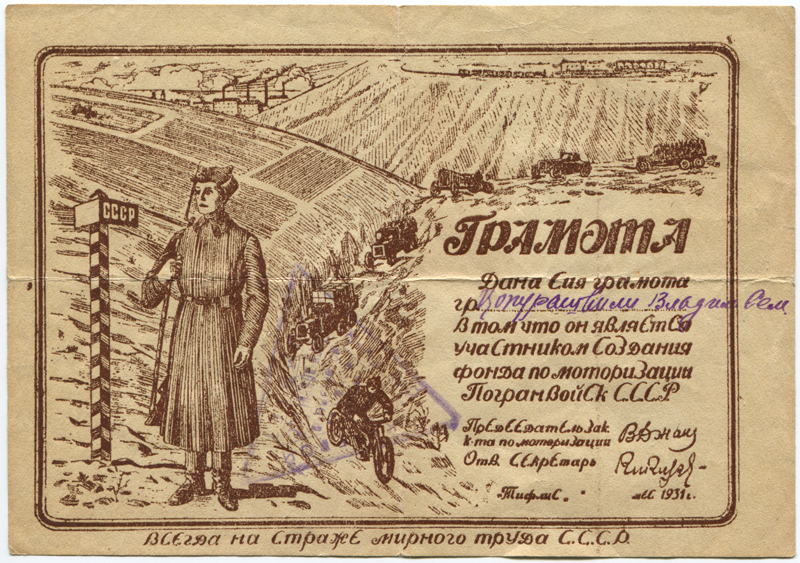 СССР
ГРАМОТА
Дана сия грамота
гр.
в том что он является
участником создания
фонда по моторизации
Погранвойск С.С.С.Р.
Председатель Зак
к-та по моторизации
Отв. Секретарь
Тифлис. 1931 г.
ВСЕГДА НА СТРАЖЕ МИРНОГО ТРУДА С.С.С.Р.